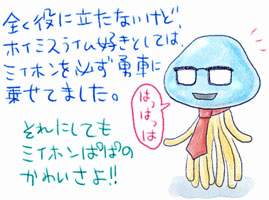 全く役に立たないけど、
ホイミスライム好きとしては、
ミイホンを必ず勇車に
乗せてました。
はっはっは
それにしても
ミイホンぱぱの
かわいさよ!!